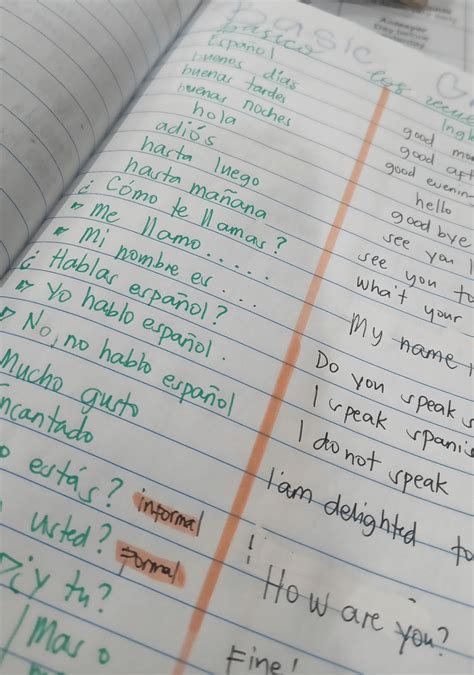 basic
básico
Español
buenos días
buenas tardes
buenas noches
hola
adiós
hasta luego
hasta mañana
¿ Cómo te llamas?
Me llamo.....
Mi nombre es....
¿ Hablas español?
Yo hablo español.
No, no hablo español
Mucho gusto
ncantado
o estás? informal
usted? Formal
¿y tu?
Mas o
Ingl
good mo
good aft
good evenin
hello
good bye
see you l
see you to
what your
My name i
Do you speak s
I speak spanis
I do not speak
I am delighted to
How are you?
Fine!